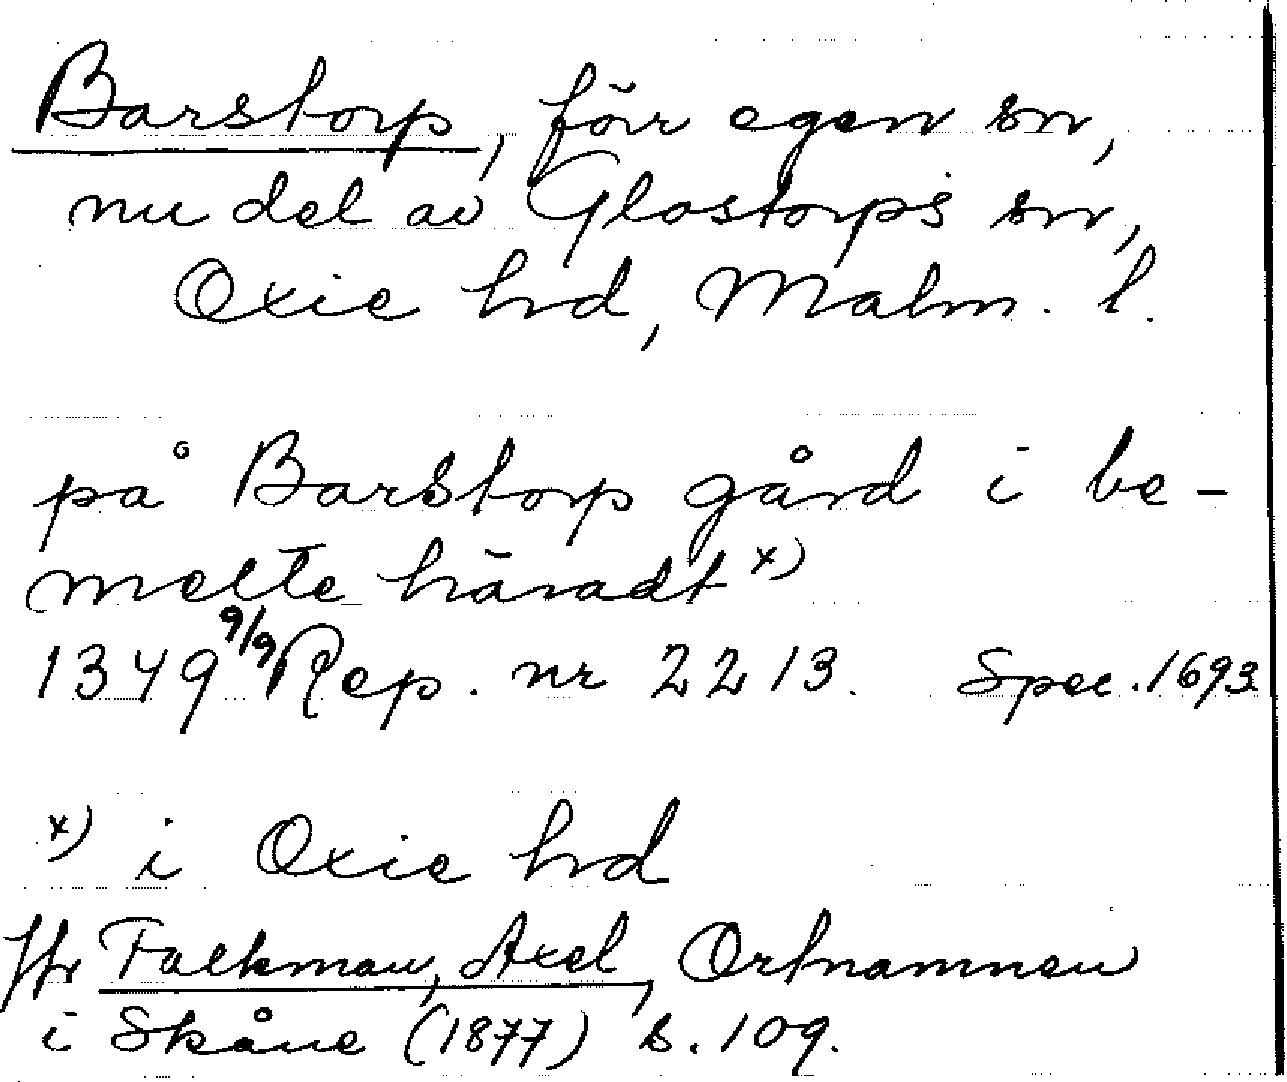 Barstorp, förr egen sn,
nu del av Glostorps sn,
Oxie hd, Malm. l.
på Barstorp gård i be-
melte häradt x)
1349 9/9 Rep. nr 2213. Spec. 1693
x) i Oxie hd
Jfr Falkman, Axel, Ortnamnen
i Skåne (1877) s. 109.